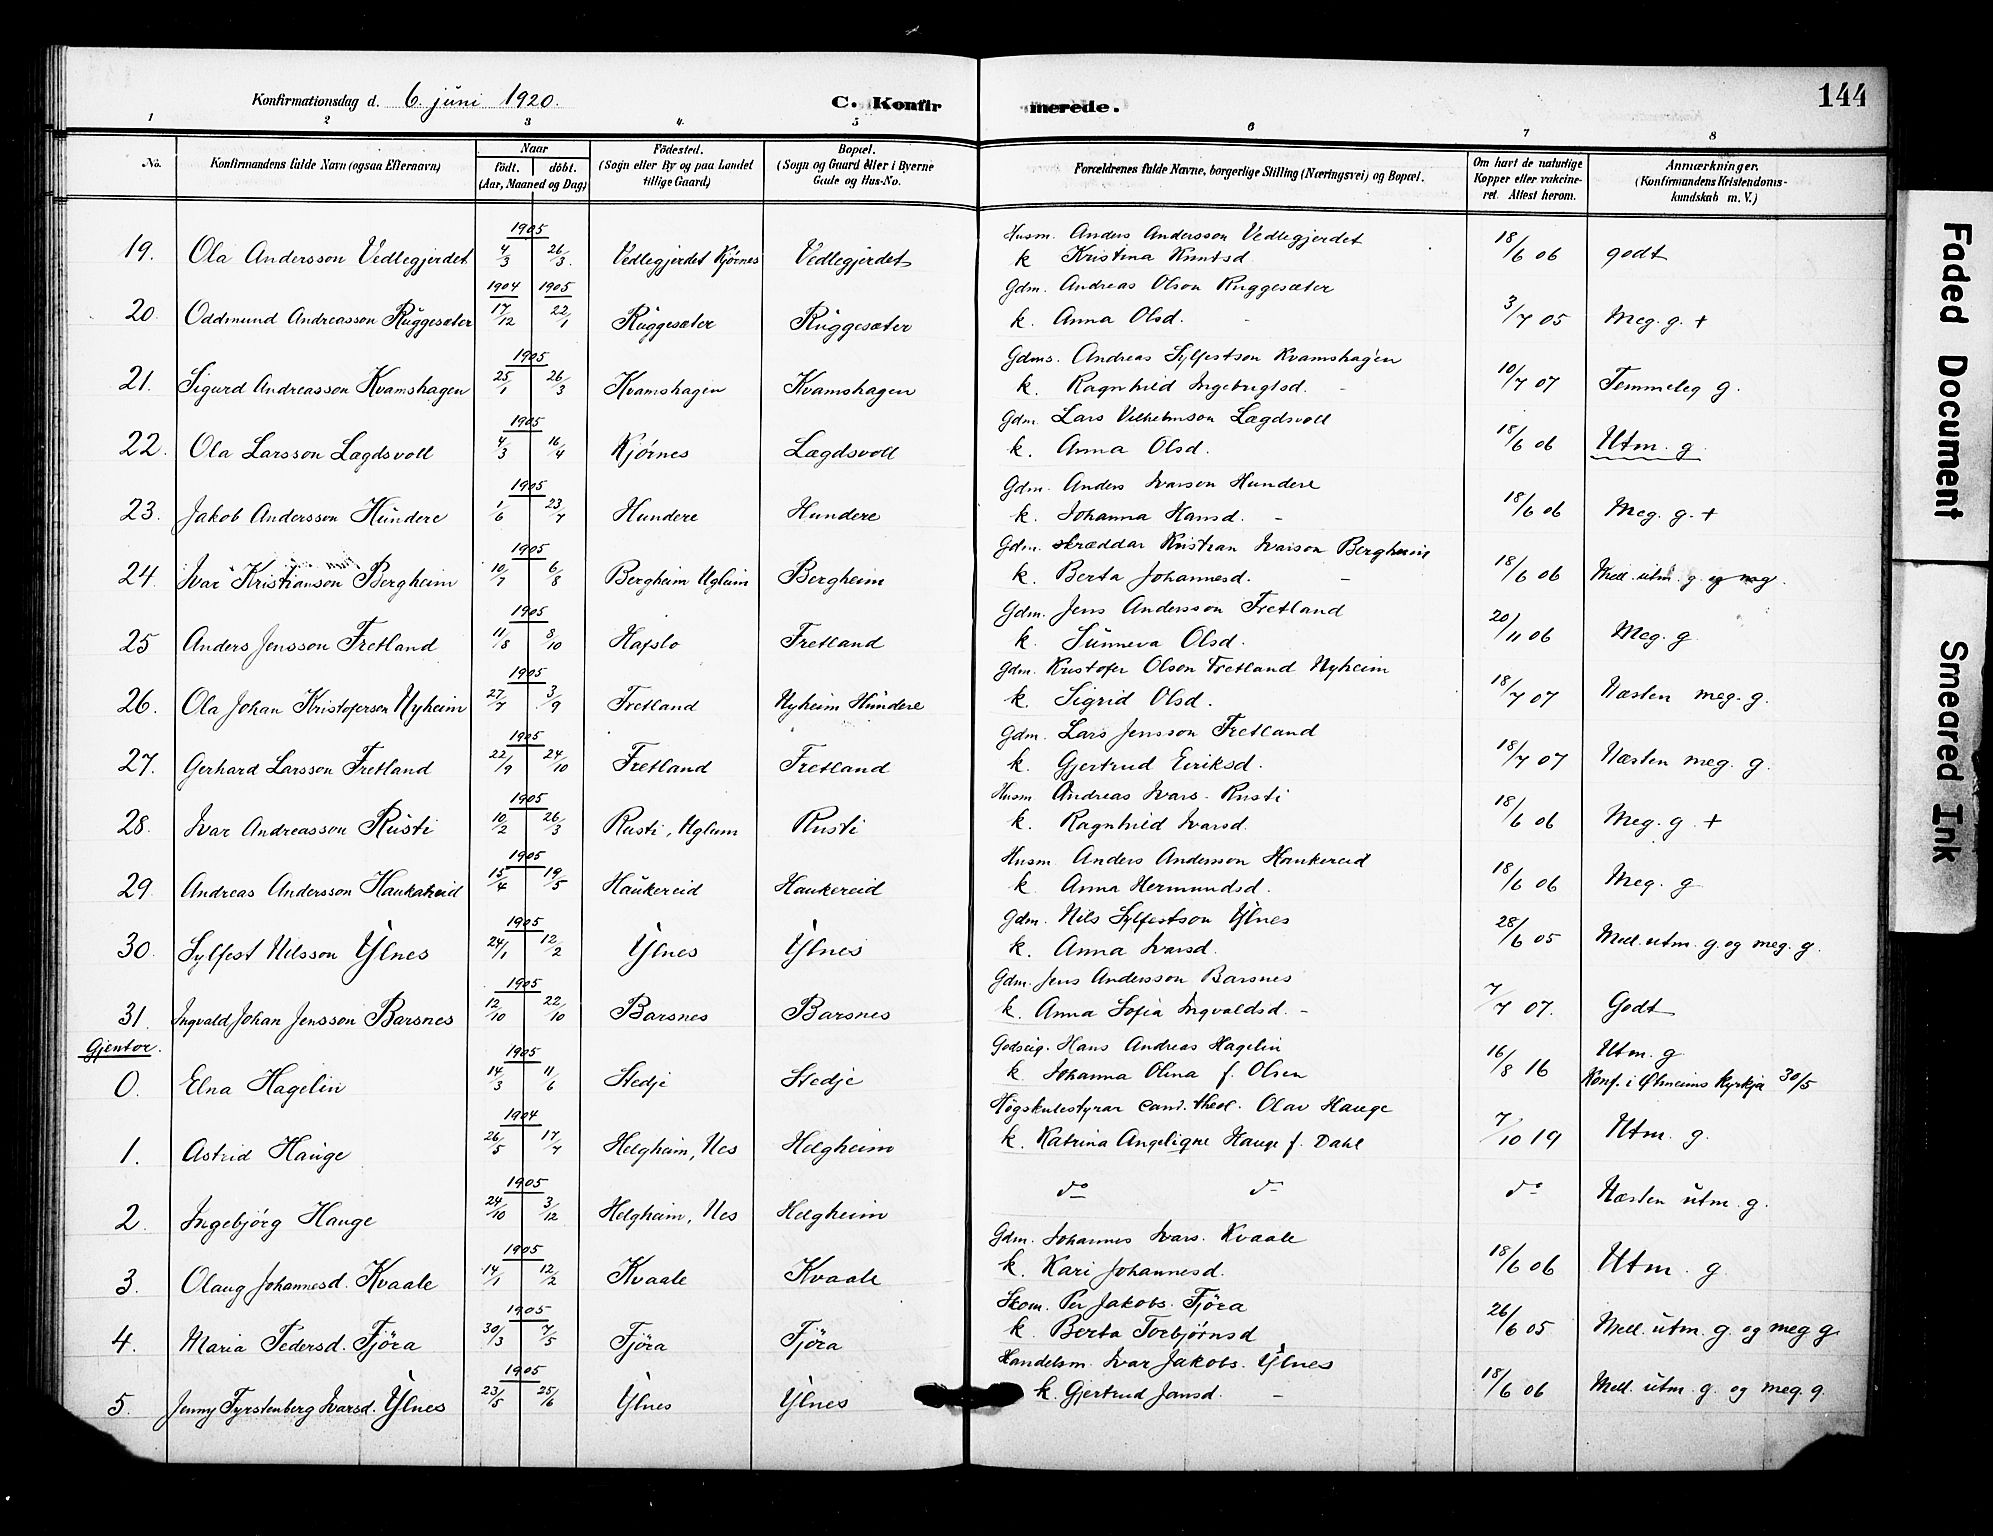 Konfirmationsdag d. 6. juni 1920. C. Konfirmerede. 144
1 2 3 4. 5 6 7 8
No. Konfirmandens fulde Navn (ogsaa Efternavn) Naar født. døbt. (Aar, Maaned og Dag) Fødested. (Sogn eller By og paa Landet tillige Gaard) Bopæl. (Sogn og Gaard eller i Byerne Gade og Hus-No. Forældrenes fulde Navne, borgerlige Stilling (Næringsvei) og Bopæl. Om havt de naturlige Kopper eller vakcineret. Attest herom. Anmærkninger. (Konfirmandens Kristendomskundskab m. V.)
19. Ola Andersson Vedlegjerdet 1905 4/3 26/3. Vedlegjerdet Kjørnes Vedlegjerdet Husm. Anders Andersson Vedlegjerdet 18/6 06 godt
k Kristina Knutsd.
20. Oddmund Andreasson Ruggesæter 1904 17/12 1905 22/1 Ruggesæter Ruggesæter Gdm. Andreas Olson Ruggesæter 3/7 05 Meg. g. +
k. Anna Olsd. -
21. Sigurd Andreasson Kvamshagen 1905 25/1 26/3 Kvamshagen Kvamshagen Gdms. Andreas Sylfestson Kvamshagen 10/7 07 Temmeleg g.
k. Ragnhild Ingebrigtsd. -
22. Ola Larsson Lægdsvoll 1905 4/3 16/4 Kjørnes Lægdsvoll Gdm. Lars Vilhelmson Lægdsvoll 18/6 06 Utm. g.
k. Anna Olsd.
23. Jakob Andersson Hundere 1905 1/6 23/7 Hundere Hundere Gdm. Anders Ivarson Hundere 18/6 06 Meg. g. +
k. Johanna Hansd. -
24. Ivar Kristianson Bergheim 1905 10/7 6/8 Bergheim Uglum Bergheim Gdm. skræddar Kristian Ivarson Bergheim 18/6 06 Mell. utm. g. og meg.
k. Berta Johannesd. -
25 Anders Jensson Fretland 1905 11/8 8/10 Hafslo Fretland Gdm. Jens Andersson Fretland 20/11 06 Meg. g
k. Sunneva Olsd.
26. Ola Johan Kristofersen Nyheim 1905 27/7 3/9 Fretland Nyheim Hundere Gdm. Kristofer Olson Fretland Nyheim 18/7 07 Næsten meg. g.
k. Sigrid Olsd.
27. Gerhard Larsson Fretland 1905 22/9 24/10 Fretland Fretland Gdm. Lars Jensson Fretland 18/7 07 Næsten meg. g.
k. Gjertrud Eiriksd.
28. Ivar Andreasson Rusti 1905 10/2 26/3 Rusti, Uglum Rusti Husm. Andreas Ivars. Rusti 18/6 06 Meg. g. +
k. Ragnhild Ivarsd.
29. Andreas Andersson Haukereid 1905 15/4 19/5 Haukereid Haukereid Husm. Anders Andersson Haukereid 18/6 06 Meg. g
k. Anna Hermundsd.
30. Sylfest Nilsson Ylnes 1905 24/1 12/2 Ylnes Ylnes Gdm. Nils Sylfestson Ylnes 28/6 05 Mell. utm. g. og meg. g.
k. Anna Ivarsd.
31. Ingvald Johan Jensson Barsnes 1905 12/10 22/10 Barsnes Barsnes Gdm. Jens Andersson Barsnes 7/7 07. Godt
k. Anna Sofia Ingvaldsd. -
Gjentor.
0. Elna Hagelin 1905 14/3 11/6 Stedje Stedje Godseig. Hans Andreas Hagelin 16/8 16 Utm. g
k. Johanna Olina f. Olsen Konf. i kyrkja 30/5
1. Astrid Hauge 1904 26/5 17/7 Helgheim, Nes Helgheim Högskulestyrar cand. theol. Olav Hauge 7/10 19 Utm. g.
k. Katrina Angeligne Hauge f. Dahl
2. Ingebjörg Hauge 1905 24/10 3/12 Helgheim, Nes Helgheim do do do Næsten utm. g.
3. Olaug Johannesd. Kvaale 1905 14/1 12/2 Kvaale Kvaale Gdm. Johannes Ivars. Kvaale 18/6 06 Utm. g
k. Kari Johannesd.
4. Maria Pedersd. Fjöra 1905 30/3 7/5 Fjöra Fjöra Skom. Per Jakobs. Fjöra 26/6 05 Mell. utm. g. og meg g.
k. Berta Torbjørnsd
5. Jenny Fyrstenberg Ivarsd. Ylnes 1905 23/5 25/6 Ylnes Ylnes Handelsm. Ivar Jakobs. Ylnes 18/6 06 Mell. utm. g. og meg. g.
k. Gjertrud Jansd. -
Faded Document
Smeared Ink